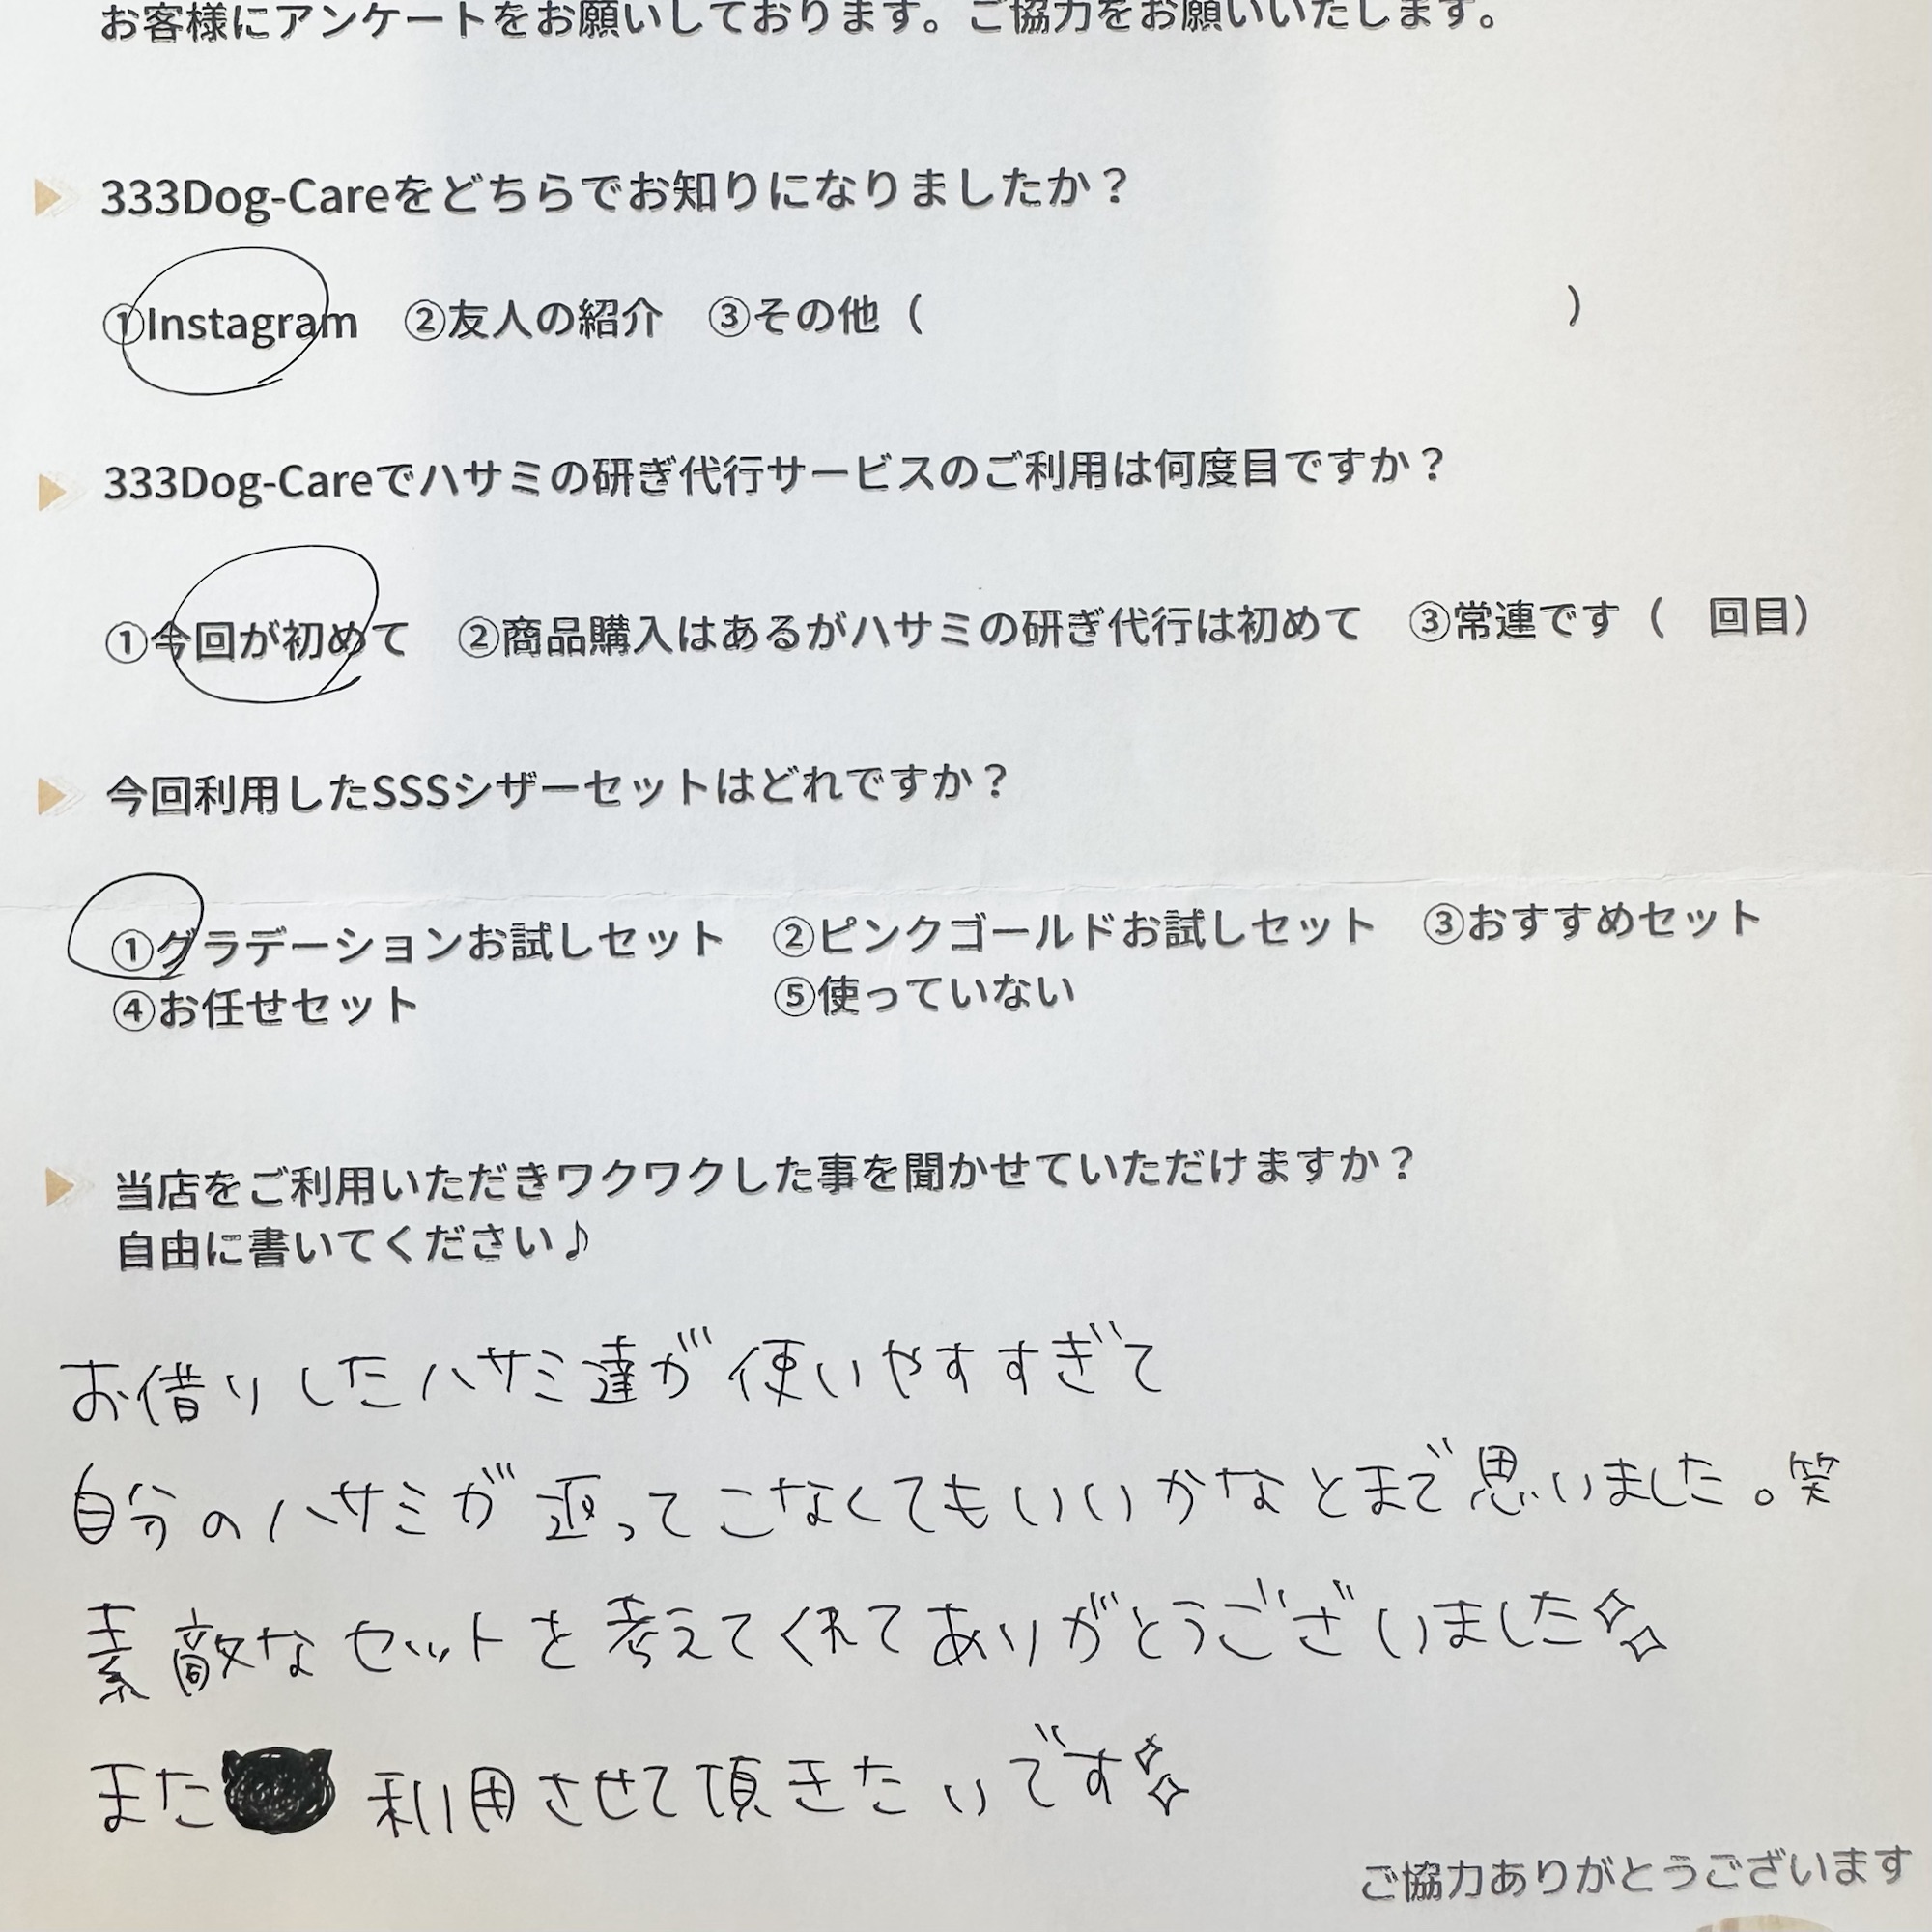 お客様にアンケートをお願いしております。ご協力をお願いいたします。
333Dog-Careをどちらでお知りになりましたか？
①Instagram　②友人の紹介　③その他（　　　　　　　　　　　　　　　）
333Dog-Careでハサミの研ぎ代行サービスのご利用は何度目ですか？
①今回が初めて　②商品購入はあるがハサミの研ぎ代行は初めて　③常連です（　回目）
今回利用したSSSシザーセットはどれですか？
①グラデーションお試しセット　②ピンクゴールドお試しセット　③おすすめセット
④お任せセット　⑤使っていない
当店をご利用いただきワクワクした事を聞かせていただけますか？
自由に書いてください♪
お借りしたハサミ達が使いやすすぎて
自分のハサミが返ってこなくてもいいかなとまで思いました。笑
素敵なセットを考えてくれてありがとうございました
また利用させて頂きたいです
ご協力ありがとうございます